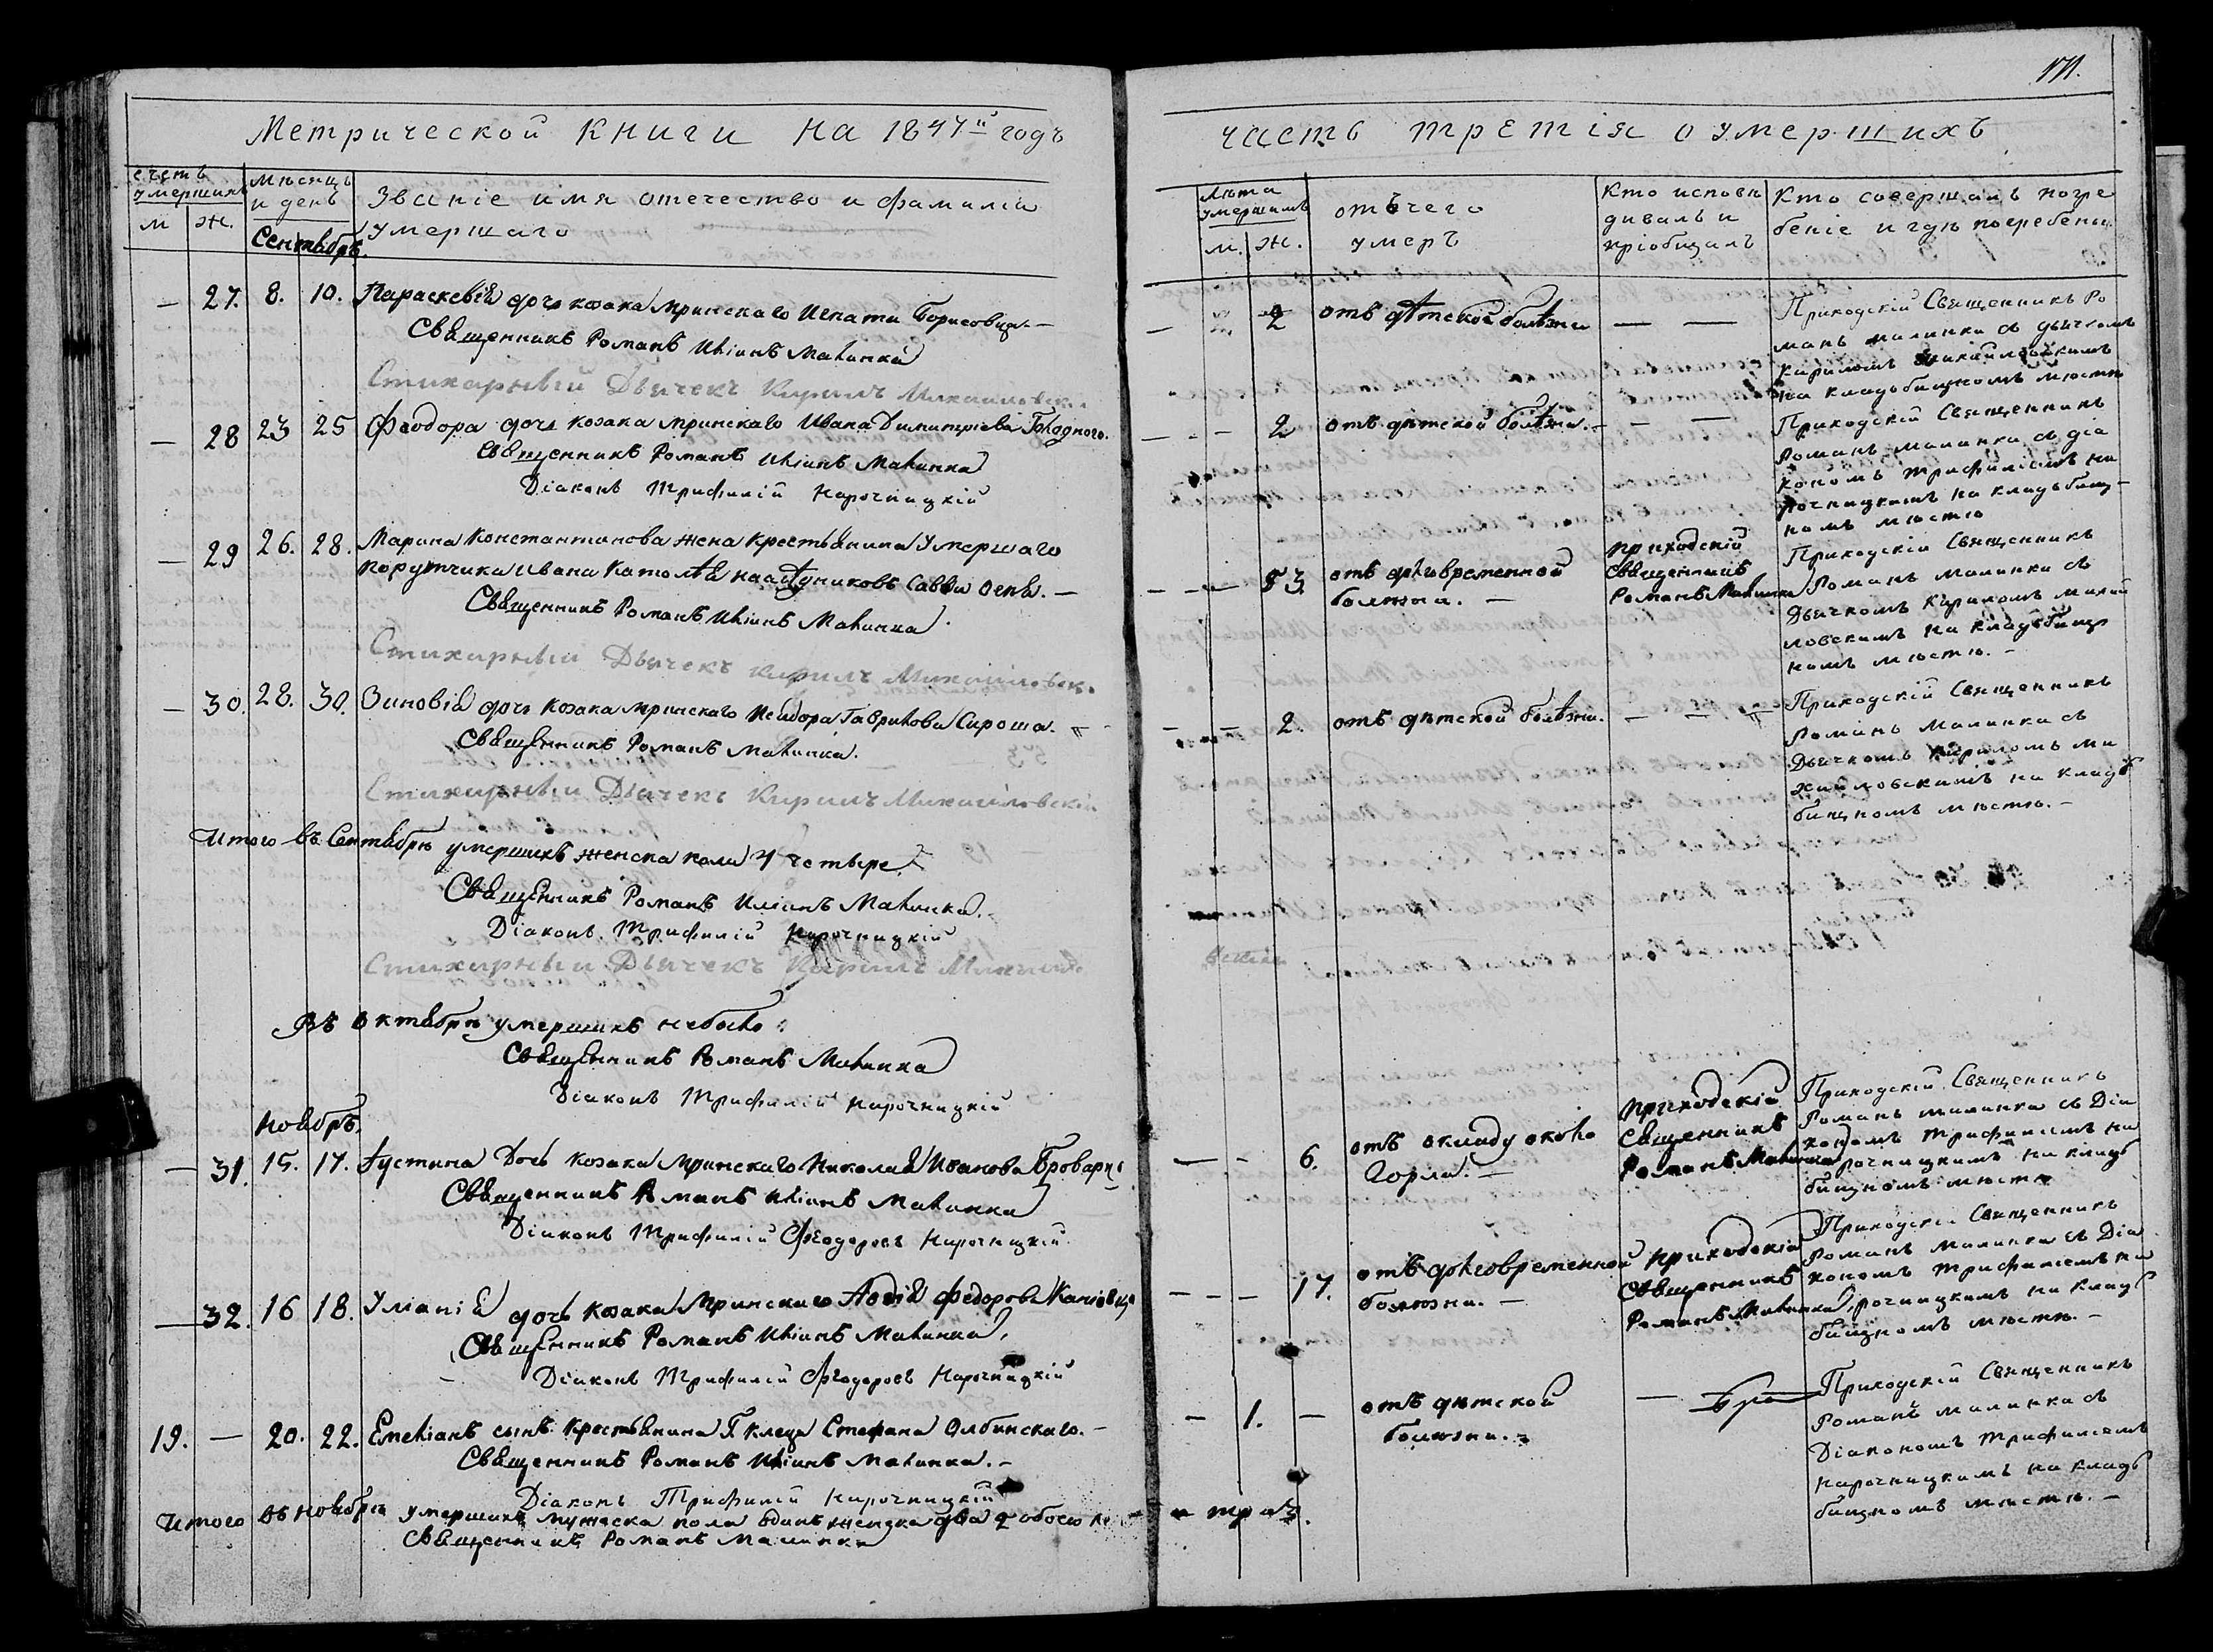 Метрической книги на 1844й годъ
счетъ умершихъ
м
ж.
Мѣсяцъ и день
Сентябрь.
Званіе имя отечество и фамилія
умершаго
— 27. 8. 10. Параскевія дочь козака Мринскаго Игната Борисовца. —
Священникъ Романъ Иліинъ Малинка
Стихарный Дьячекъ Кирилъ Михаиловскі
— 28 23 25 Феодора дочь козака Мринскаго Ивана Димитріева Голодного.
Священникъ Романъ Иліинъ Малинка
Діаконъ Трифилій Нарочницкій
— 29 26. 28. Марина Константинова жена Крестьянина умершаго
порутчика Ивана Савви —
Священникъ Романъ Иліинъ Малинка
Стихарный Дьячекъ Кирилъ Михаиловск.
— 30. 28. 30. Зиновія дочь козака Мринскаго Исидора Гаврилова Сироша.
Священникъ Романъ Малинка.
Стихарный Дьячекъ Кирилъ Михаиловскій
Итого въ Сентябрѣ умершихъ женска пола 4 четыре.
Священникъ Романъ Иліинъ Малинка.
Діаконъ Трифилій Нарочницкій
Стихарный Дьячекъ Кирилъ Михаило
Въ Октябрѣ умершихъ небыло
Священникъ Романъ Малинка
Діаконъ Трифилій Нарочницкій
Ноябрь.
— 31. 15. 17. Іустина Дочь козака Мринскаго Николая Иванова
Священникъ Романъ Иліинъ Малинка
Діаконъ Трифилій Феодоровъ Нарочницкій
— 32. 16 18. Уліанія дочь козака Мринскаго Авдія Федорова
Священникъ Романъ Иліинъ Малинка,
Діаконъ Трифилій Феодоровъ Нарочницкій
19. — 20. 22. Емеліанъ сынъ Крестьянина Г. Стефана Олбинскаго. —
Священникъ Романъ Иліинъ Малинка. —
Діаконъ Трифилій Нарочницкій
Итого въ Ноябрѣ умершихъ мужеска пола одинъ женска два 2 обоего
Священникъ Романъ Малинка
171.
часть третія о умершихъ
Лѣта умершихъ
м.
ж.
отъ чего
умеръ
Кто исповѣ
дивалъ и
пріобщалъ
Кто совершалъ погре
беніе и гдѣ погребены
— 2 отъ дѣтской болѣзни — —
Приходскій Священникъ Ро
манъ Малинка съ дьячкомъ
Кириломъ Михаиловскимъ
на кладбищномъ мѣстѣ
— - - 2 отъ дѣтской болѣзни. - - —
Приходскій Священникъ
Романъ Малинка съ діа
кономъ Трифиліемъ На
рочницкимъ на кладбищ-
номъ мѣстѣ
- - — 53 отъ долговременной
болѣзни. —
приходскій
Священникъ
Романъ Малинка
Приходскій Священникъ
Романъ Малинка съ
Дьячкомъ Кириломъ Михаи
ловскимъ на кладбищ
номъ мѣстѣ. —
- - 2. отъ дѣтской болѣзни. — —
Приходскій Священникъ
Романъ Малинка съ
Дьячкомъ Кириломъ Ми
хаиловскимъ на кладб
бищномъ мѣстѣ. —
вскій
— - 6. отъ окладу около
горла. —
приходскій
Священникъ
Романъ Малинка
Приходскій Священникъ
Романъ Малинка съ Діа
кономъ Трифиліемъ На
рочницкимъ на кладб
бищномъ мѣстѣ
- - — 17. отъ долговременной
болѣзни. —
приходскій
Священникъ
Романъ Малинка
Приходскій Священникъ
Романъ Малинка съ Діа
кономъ Трифиліемъ На
рочницкимъ на кладб
бищномъ мѣстѣ. —
— 1. — отъ дѣтской
болѣзни. —
Приходскій Священникъ
Романъ Малинка съ
Діакономъ Трифиліемъ
Нарочницкимъ на кладб
бищномъ мѣстѣ. —
три 3.